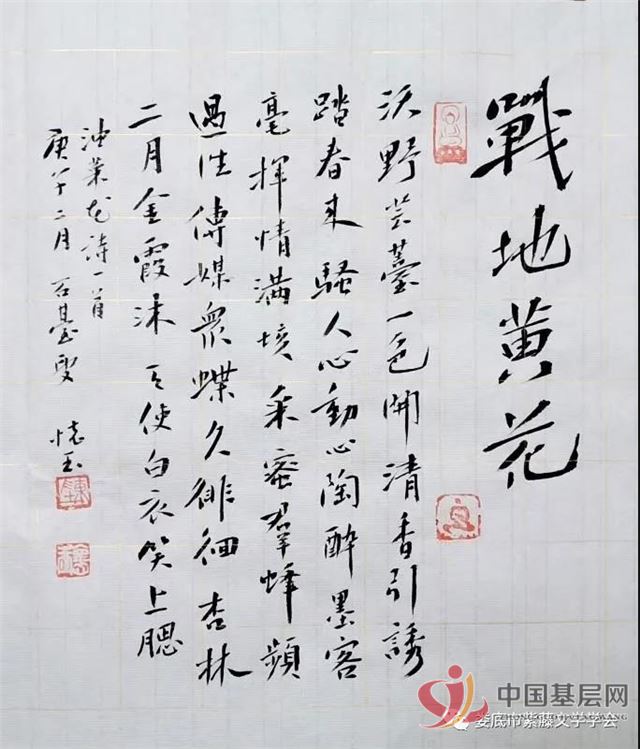 戰地黄花
沃野芸薹一色開清香引誘
踏春来騷人心動心陶醉墨客
毫揮情滿垓采蜜羣蜂頻
過往傳媒衆蝶久徘徊杏林
二月金霞沐天使白衣笑上腮
油菜花詩一首
庚子二月石臺叟 懷玉
中国基层网
娄底市紫藤文学学会